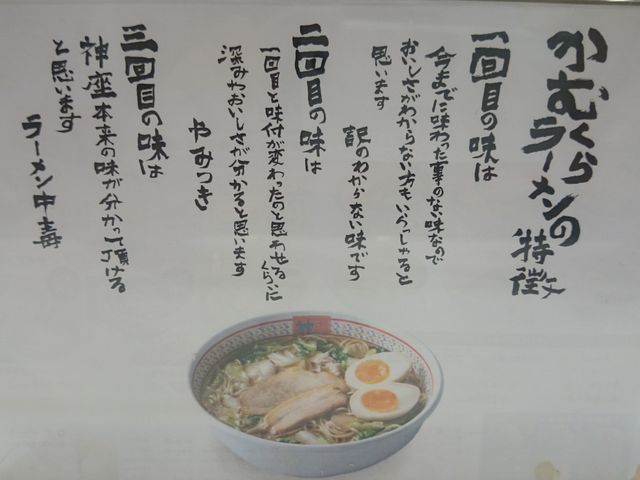 かむくら
ラーメンの
特徴
一回目の味は
今までに味わった事のない味なので
おいしさがわからない方もいらっしゃると
思います
訳のわからない味です
二回目の味は
一回目と味付が変わったのと思わせるくらいに
深みやおいしさが分かると思います
やみつき
三回目の味は
神座本来の味が分かって頂ける
と思います
ラーメン中毒
神